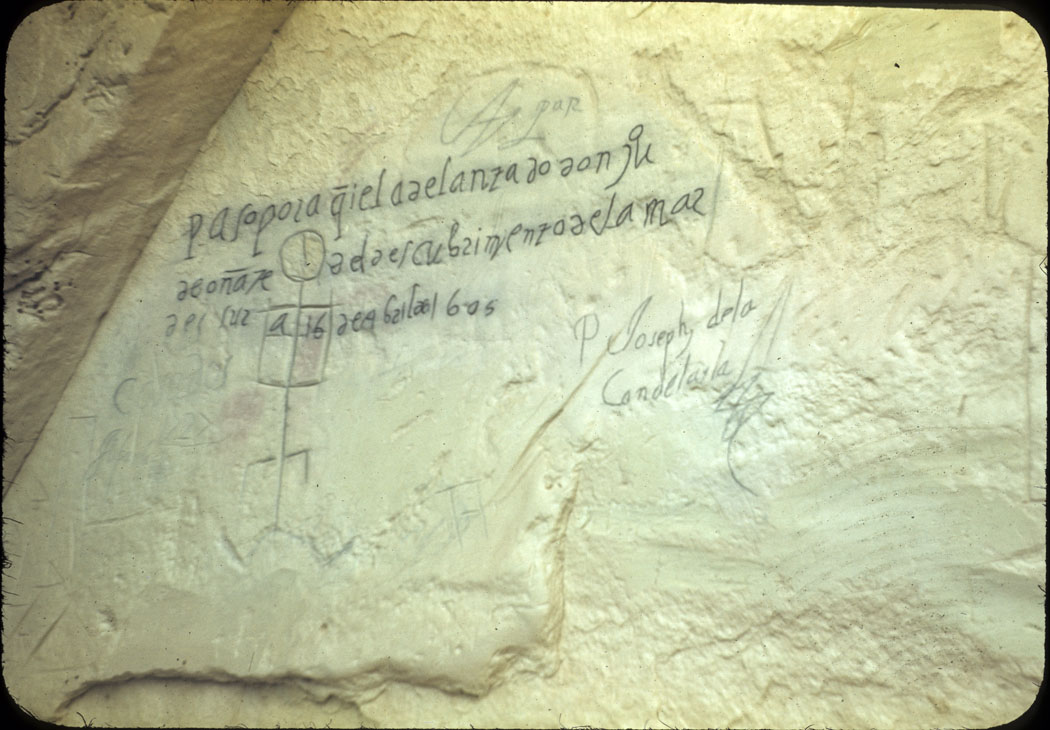 pasopora q̃iel adelantado don jũ
de oñate al descubrimento de la mar
del sur a 16 de abril del 1605
P Joseph de la
Candelaria